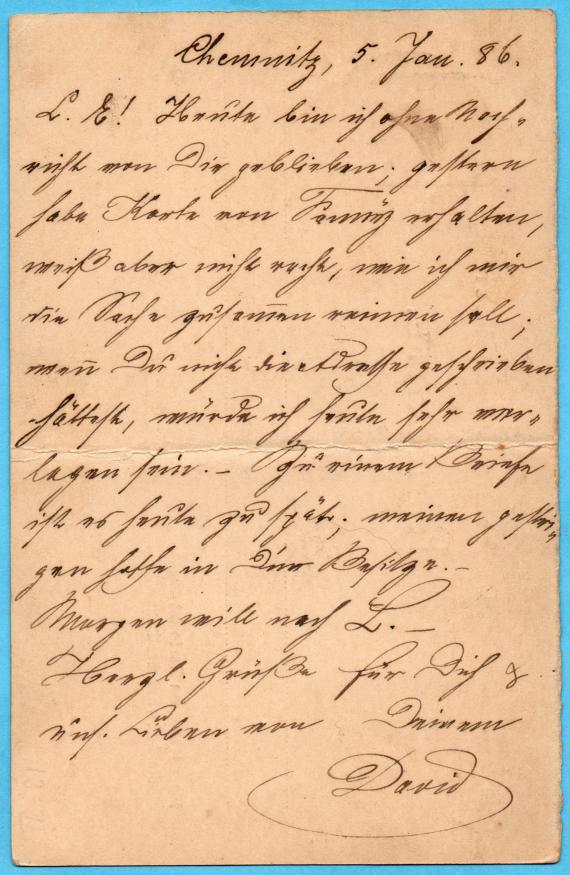 Chemnitz, 5. Jan. 86.
L. E! Heute bin ich ohne Nach-
richt von Dir geblieben; gestern
habe Karte von Fanny erhalten,
weiß aber nicht recht, wie ich mir
die Sache zusammen reimen soll;
wenn Du nicht die Adresse geschrieben
hättest, würde ich heute sehr ver-
legen sein. – Zu einem Briefe
ist es heute zu spät; meinen gestri-
gen hoffe in Dein Besitze. –
Morgen will nach L. –
Herzl. Grüße für Dich &
uns. Lieben von Deinem
David